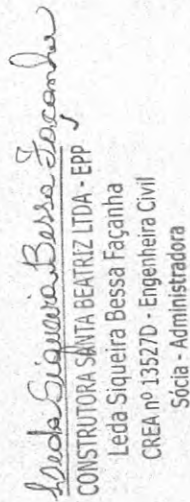 Leda Siqueira Bessa Façanha
CONSTRUTORA SANTA BEATRIZ LTDA - EPP
Leda Siqueira Bessa Façanha
CREA nº 13527D - Engenheira Civil
Sócia - Administradora